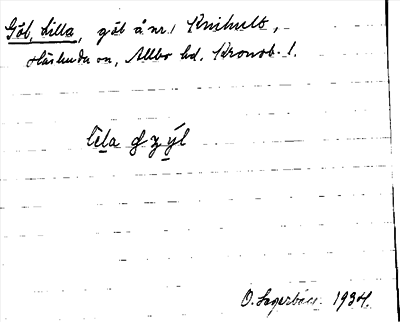 Göl, Lilla, göl å nr 1 Knihult,
Härlunda sn, Allbo hd. Kronob. l.
lila
O. Lagerbäck 1934.